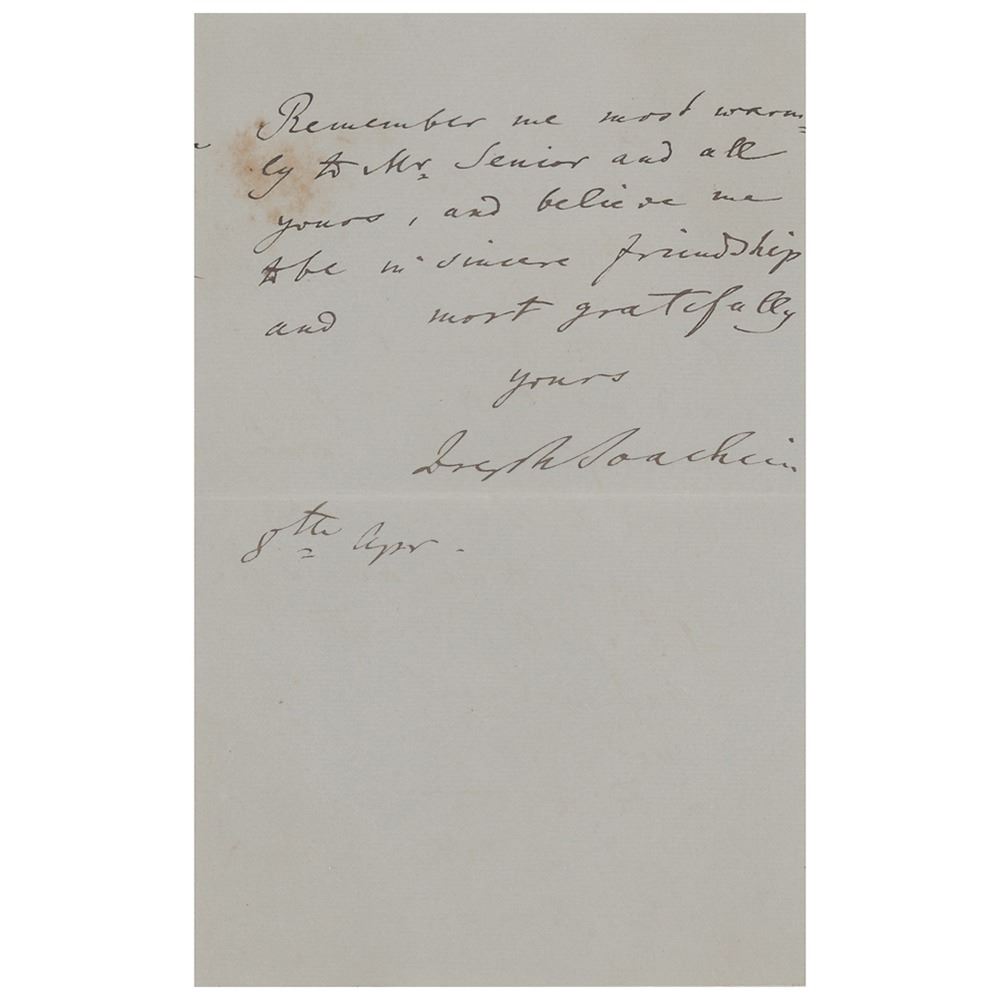 Remember me most warm-
ly to Mr. Senior and all
yours, and believe me
to be in sincere friendship
and most gratefully
yours
Joseph Joachim
8th Apr.